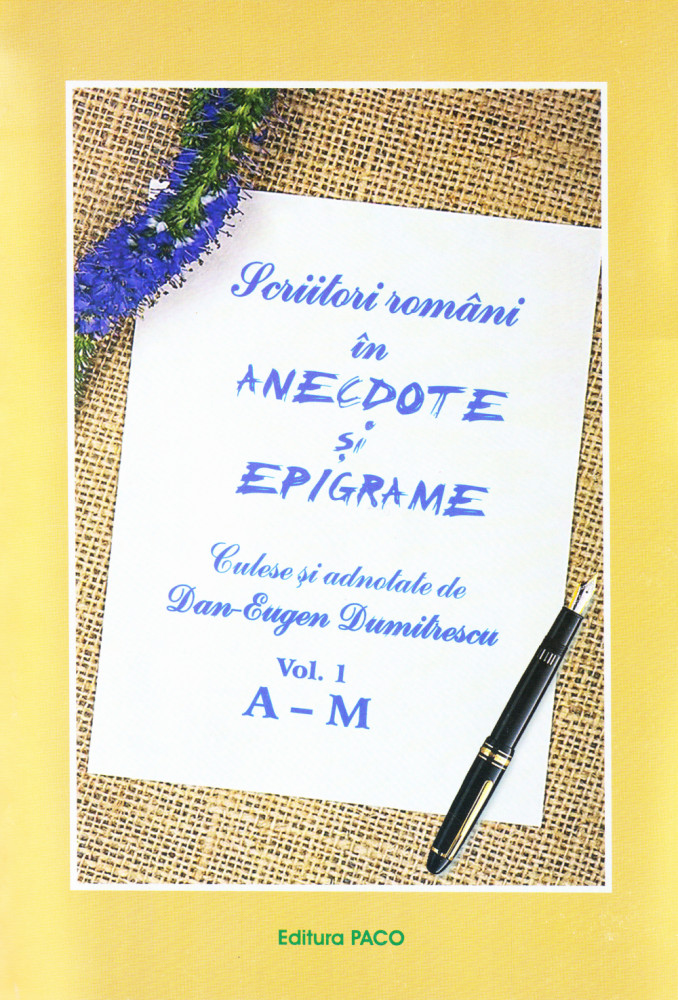 Scriitori români
în
ANECDOTE
și
EPIGRAME
Culese și adnotate de
Dan-Eugen Dumitrescu
Vol. 1
A – M
Editura PACO